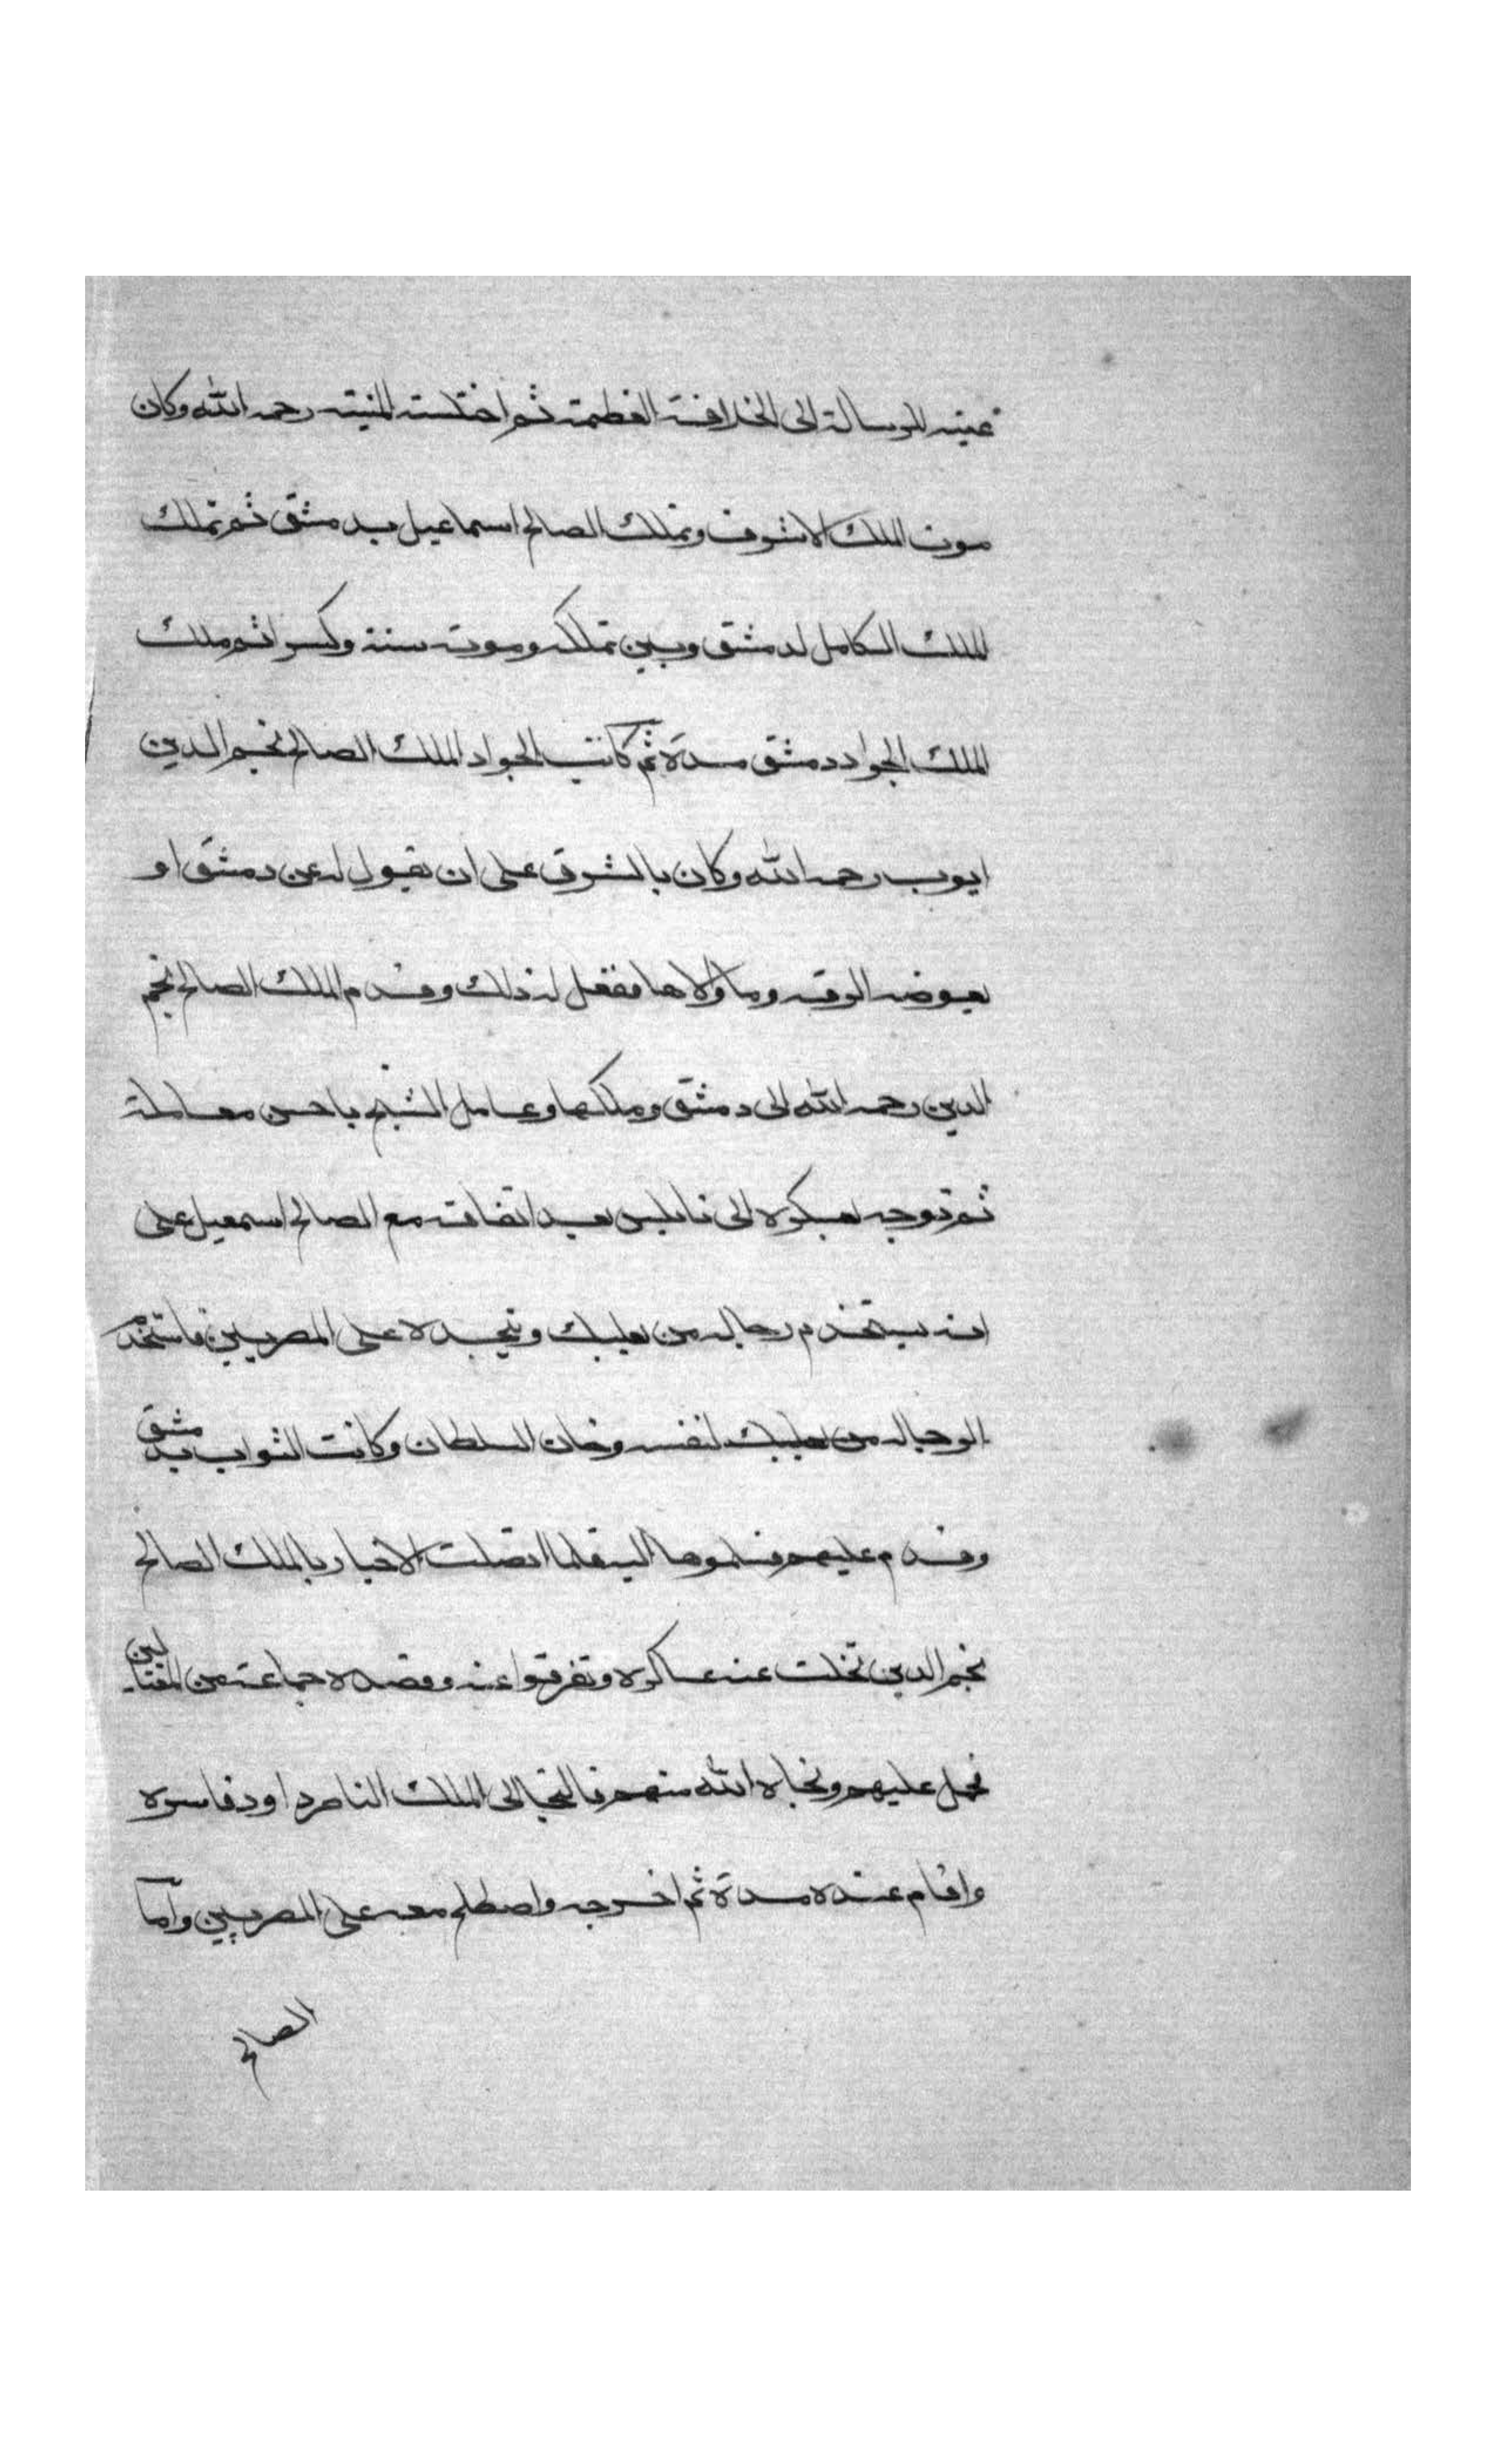 عينه للرسالة الى الخلافة العظمة ثم اختلسته المنية رحمه الله وكان
موت الملك الاشرف وتملك الصالح اسماعيل بدمشق ثم تملك
الملك الكامل لدمشق وبين تملكه وموته سنة وكسر ثم ملك
الملك الجواد دمشق مدة ثم كاتب الجواد الملك الصالح نجم الدين
ايوب رحمه الله وكان بالشرق على ان يقول له عن دمشق او
يعوضه الرقه وما والاها ففعل له ذلك وقدم الملك الصالح نجم
الدين رحمه الله الى دمشق وملكها وعامل الشيخ باحسن معاملة
ثم توجه بعسكره الى نابلس بعد اتفاقه مع الصالح اسمعيل على
انه يستخدم رجاله من بعلبك وينجده على المصريين فاستخدم
الرجاله من بعلبك لنفسه وخان السلطان وكاتب النواب بدمشق
وقدم عليهم فسلموها اليه فلما اتصلت الاخبار بالملك الصالح
نجم الدين تخلت عنه عساكره وتفرقوا عنه وقصده جماعة من المقتالين
فحمل عليهم ونجاه الله منهم فالتجا الى الملك الناصر داود فاسره
واقام عنده مدة ثم اخرجه واصطلح معه على المصريين واما
الصالح